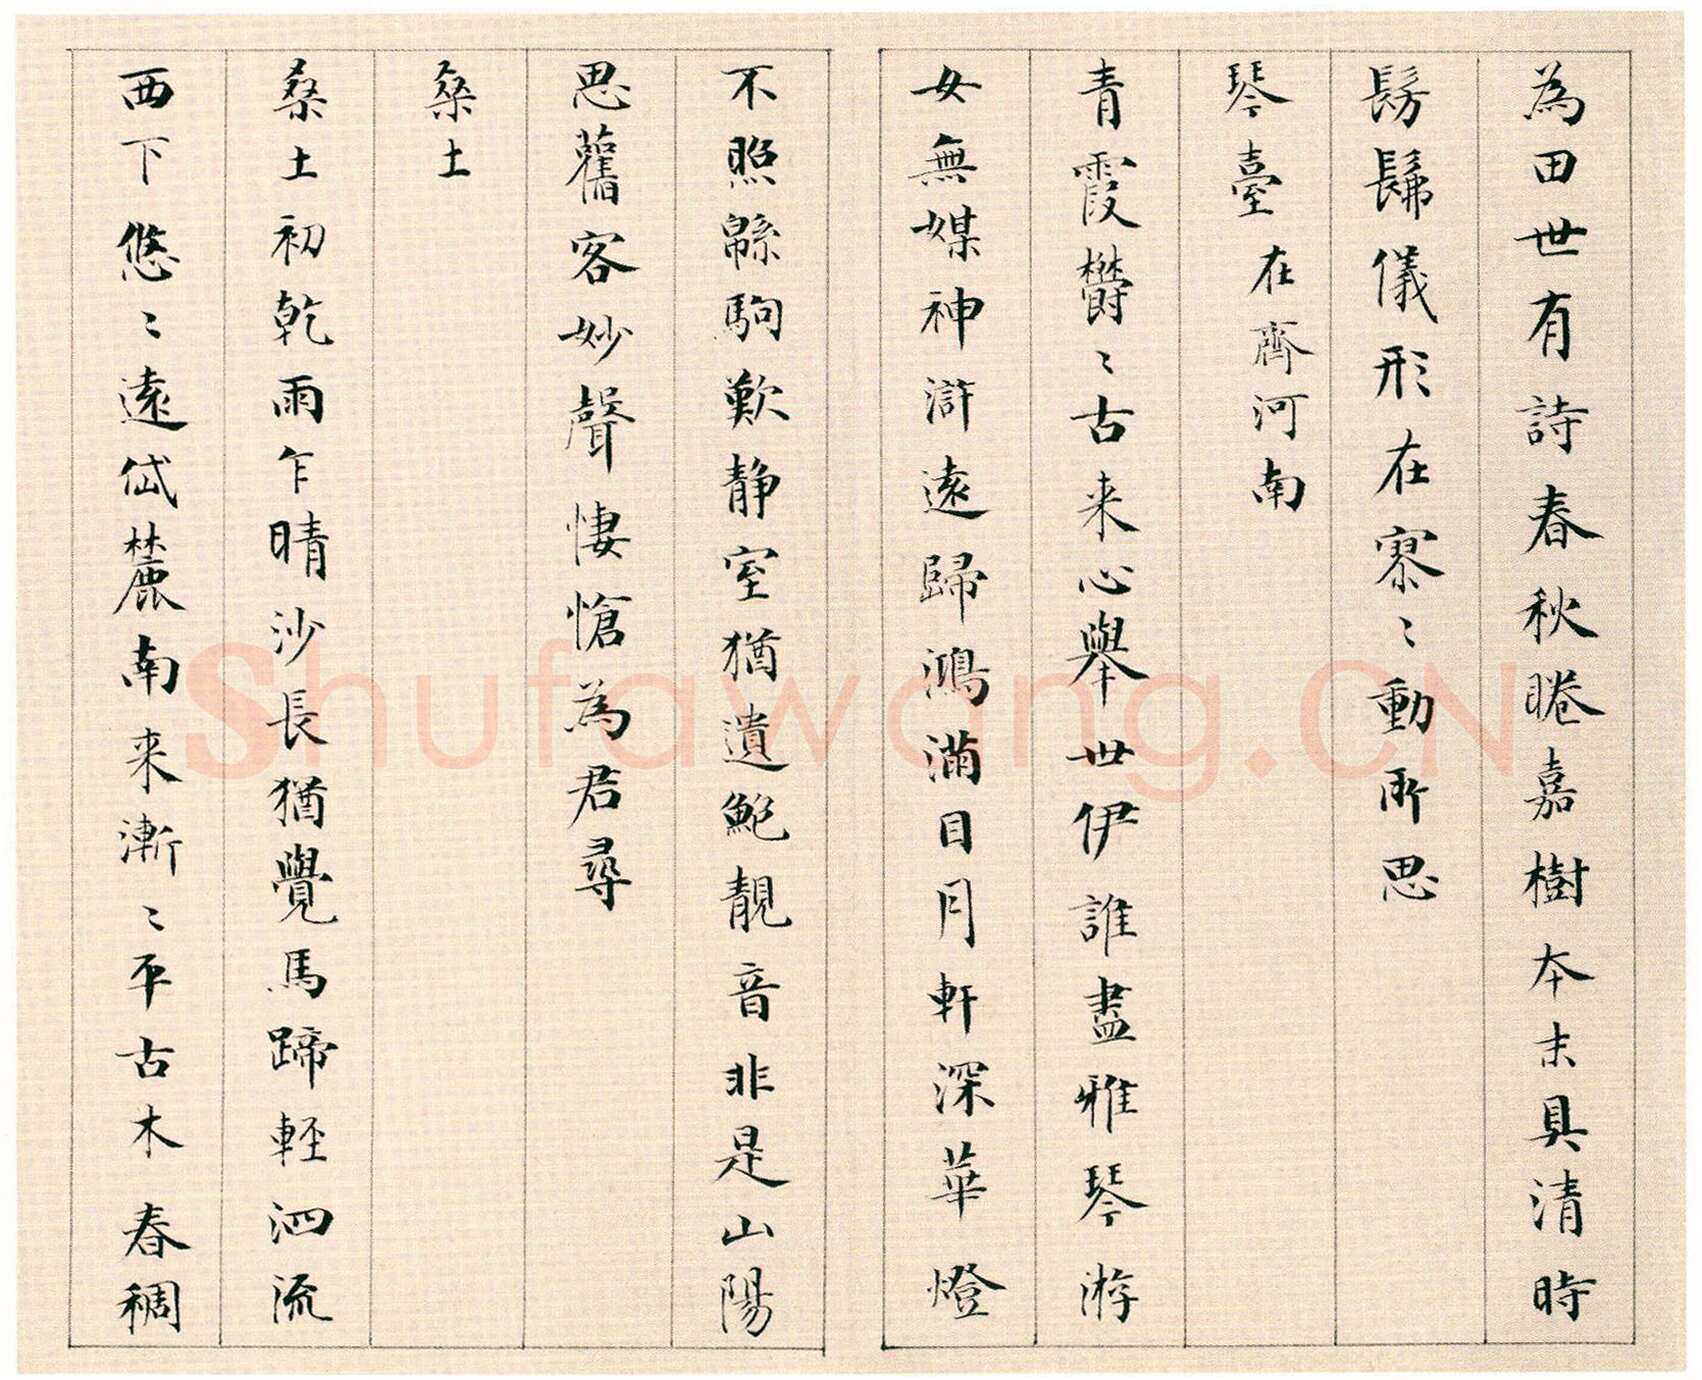 為田世有詩春秋睠嘉樹本末具清時
髣髴儀形在寥〻動所思
琴臺在齊河南
青霞欝〻古来心舉世伊誰盡雅琴游
女無媒神滸遠歸鴻滿目月軒深華燈
不照緜駒歎静室猶遺鮑靚音非是山陽
思舊客妙聲悽愴為君尋
桑土
桑土初乾雨乍晴沙長猶覺馬蹄軽泗流
西下悠〻遠岱麓南来漸〻平古木春稠
Shufawang.CN